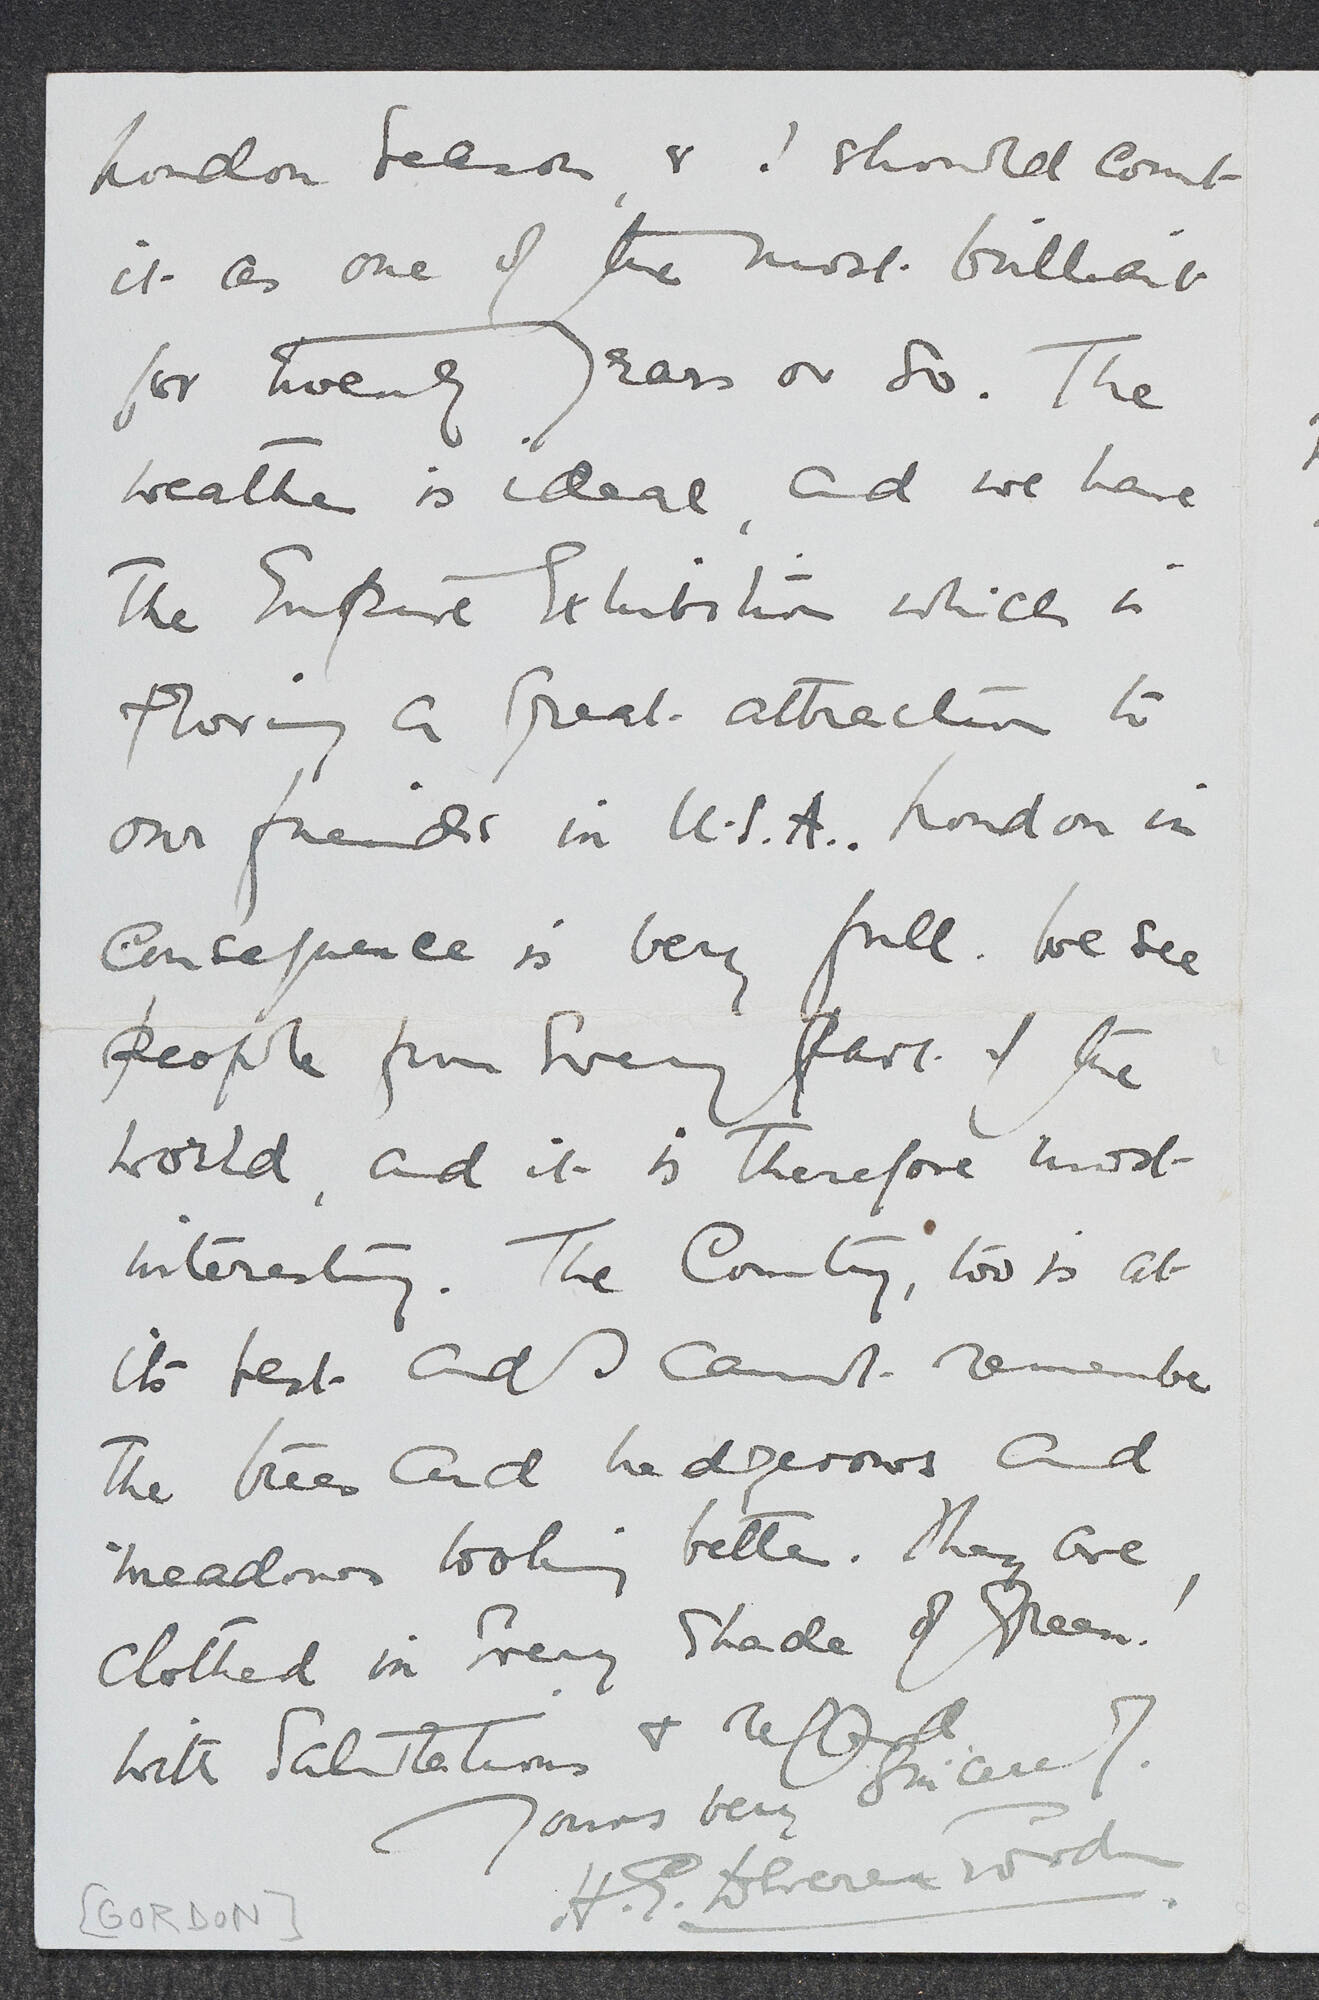 London Season, & I should count
it as one of the most brilliant
for twenty years or so. The
weather is ideal, and we have
the Empire Exhibition which is
proving a great attraction to
our friends in U.S.A.. London in
Consequence is very full. We see
people from every part of the
world, and it is therefore most
interesting. The Country, too is at
its best and I cannot remember
the trees and hedgerows and
meadows looking better. They are,
clothed in every shade of green!
With Salutations & regard
Yours very Sincerely.
H. E. Gordon.
[GORDON]